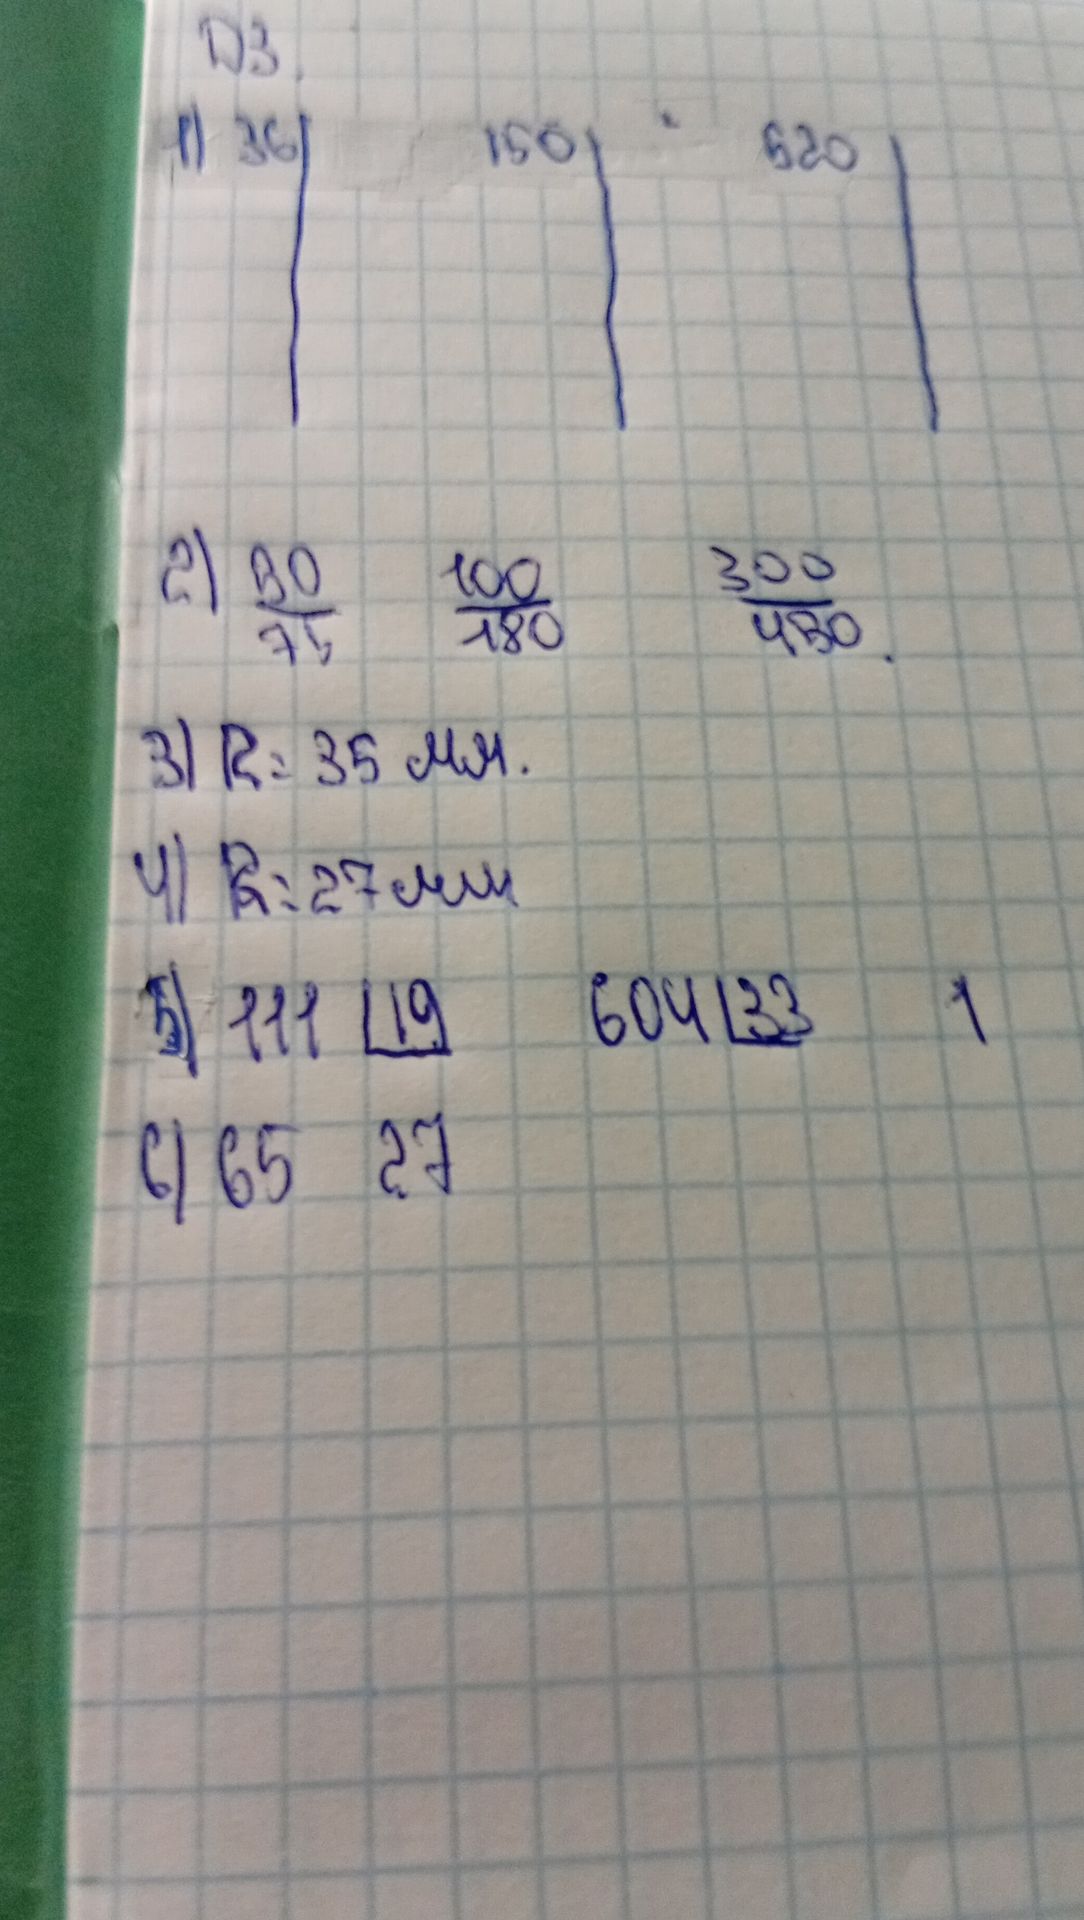 ДЗ.
1) 36| 150| 520|
2) 30/75 100/180 300/450.
3) R= 35 мм.
4) R=27 мм
5) 111 19 604 33 1
6) 65 27